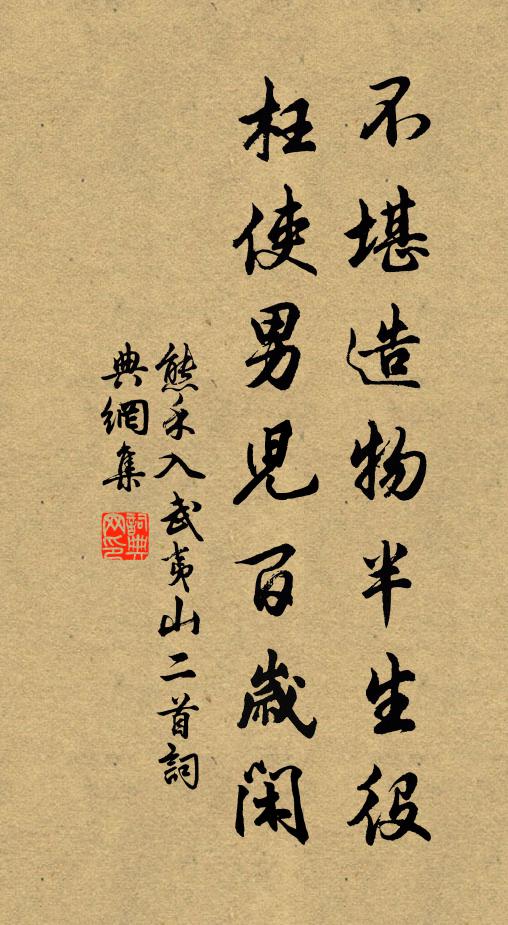 不堪造物半生役
枉使男兒百歲閑
熊禾入武夷山二首詞
典網集
詞典網印